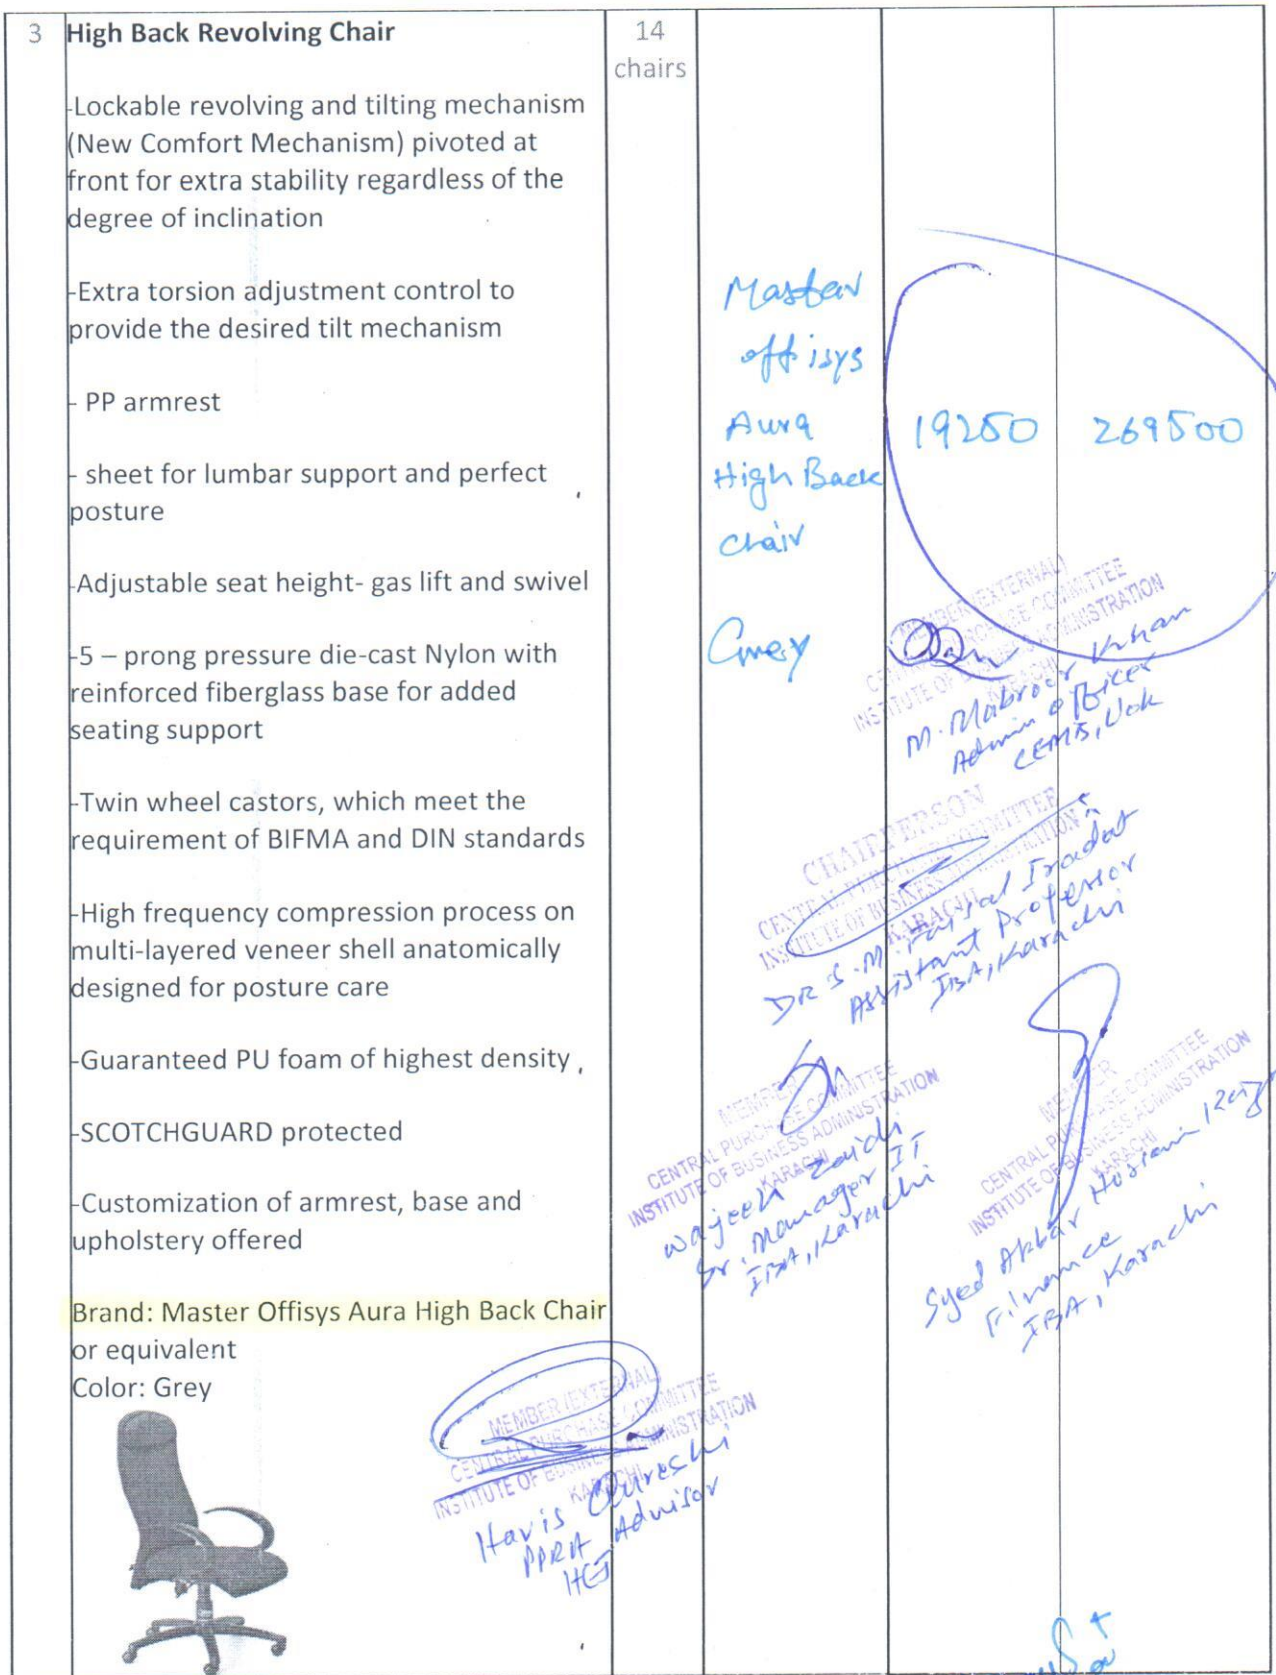 3
High Back Revolving Chair
14
chairs
-Lockable revolving and tilting mechanism
(New Comfort Mechanism) pivoted at
front for extra stability regardless of the
degree of inclination
-Extra torsion adjustment control to
provide the desired tilt mechanism
- PP armrest
- sheet for lumbar support and perfect
posture
-Adjustable seat height- gas lift and swivel
-5 – prong pressure die-cast Nylon with
reinforced fiberglass base for added
seating support
-Twin wheel castors, which meet the
requirement of BIFMA and DIN standards
-High frequency compression process on
multi-layered veneer shell anatomically
designed for posture care
-Guaranteed PU foam of highest density
-SCOTCHGUARD protected
-Customization of armrest, base and
upholstery offered
Brand: Master Offisys Aura High Back Chair
or equivalent
Color: Grey
Master
offisys
Aura
High Back
Chair
Grey
19250
269500
MEMBER (EXTERNAL)
CENTRAL PURCHASE COMMITTEE
INSTITUTE OF BUSINESS ADMINISTRATION
KARACHI
M. Mabroor Khan
Admin Officer
CEMB, UoK
CHAIRPERSON
CENTRAL PURCHASE COMMITTEE
INSTITUTE OF BUSINESS ADMINISTRATION
KARACHI
DR S.M. Faisal Iradat
Assistant Professor
IBA, Karachi
MEMBER
CENTRAL PURCHASE COMMITTEE
INSTITUTE OF BUSINESS ADMINISTRATION
KARACHI
Wajeeh Zaidi
Sr. Manager IT
IBA, Karachi
MEMBER
CENTRAL PURCHASE COMMITTEE
INSTITUTE OF BUSINESS ADMINISTRATION
KARACHI
Syed Akbar
Finance
IBA, Karachi
MEMBER (EXTERNAL)
CENTRAL PURCHASE COMMITTEE
INSTITUTE OF BUSINESS ADMINISTRATION
KARACHI
Haris Qureshi
PPRA Advisor
HEJ